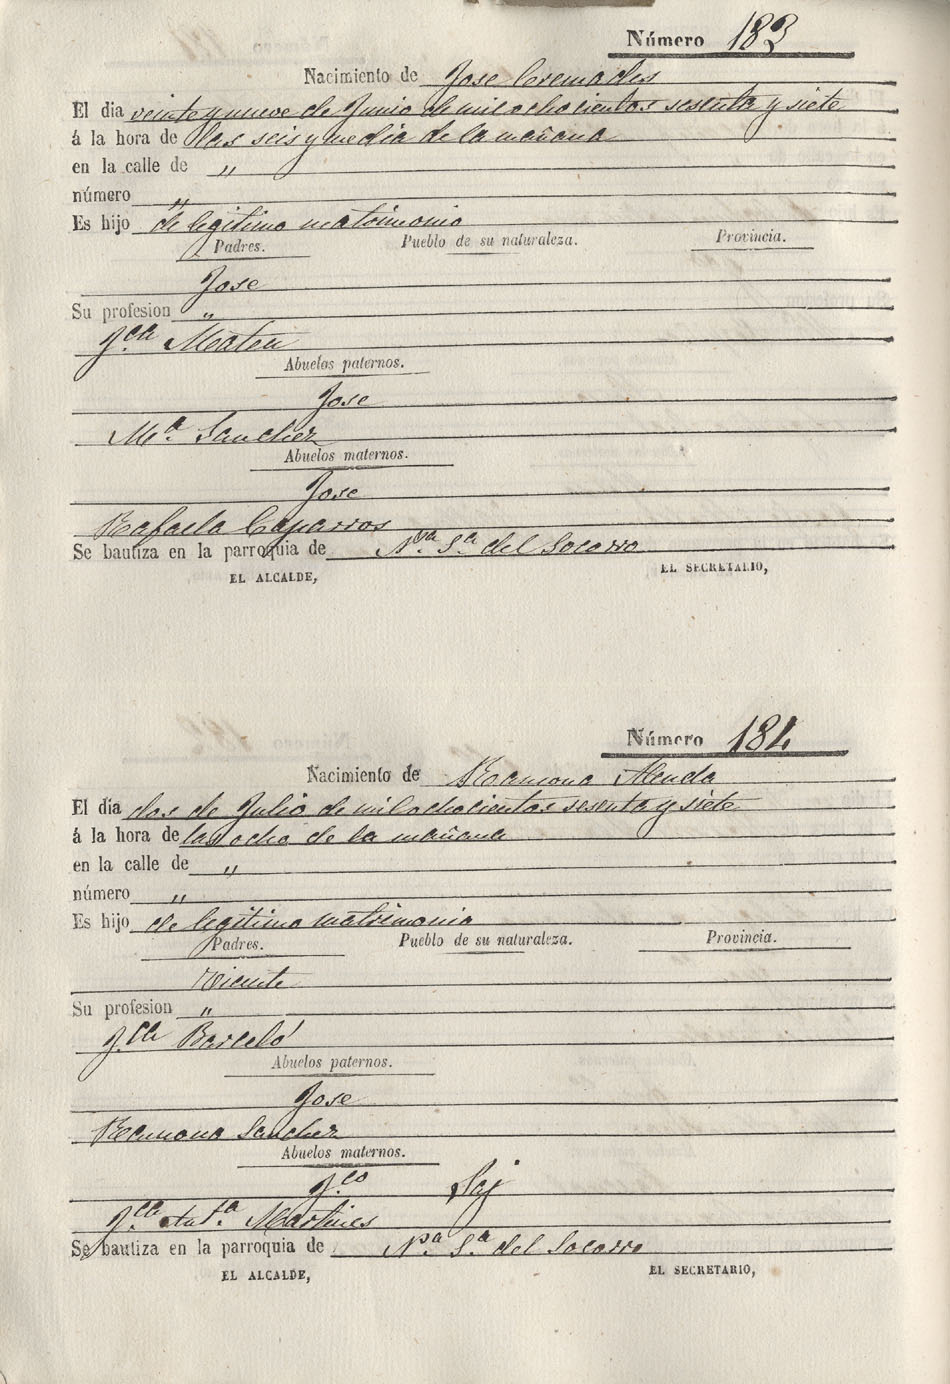 Número 183
Nacimiento de Jose Cremades
El dia veinte y nueve de Junio de mil ochocientos sesenta y siete
á la hora de las seis y media de la mañana
en la calle de "
número "
Es hijo de legitimo matrimonio
Padres. Pueblo de su naturaleza. Provincia.
Jose
Su profesion "
Fca Mateu
Abuelos paternos.
Jose
Ma. Sanchez
Abuelos maternos.
Jose
Rafaela Caparros
Se bautiza en la parroquia de Nra. Sa del Socorro
EL ALCALDE, EL SECRETARIO,
Número 184
Nacimiento de Ramona Alenda
El dia dos de Julio de mil ochocientos sesenta y siete
á la hora de las ocho de la mañana
en la calle de "
número "
Es hijo de legitimo matrimonio
Padres. Pueblo de su naturaleza. Provincia.
Vicente
Su profesion "
Fca Barceló
Abuelos paternos.
Jose
Ramona Sanchez
Abuelos maternos.
Fco
Fca Anta Martines
Se bautiza en la parroquia de Nra. Sa del Socorro
EL ALCALDE, EL SECRETARIO,